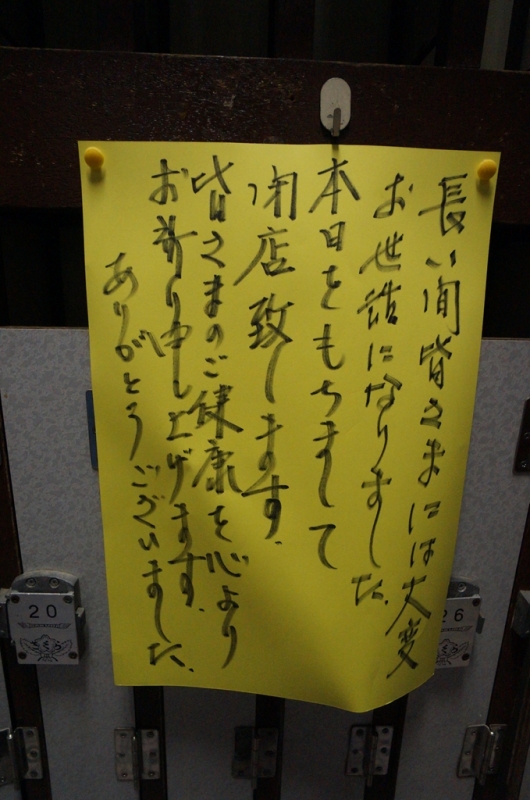 長い間皆さまには大変
お世話になりました。
本日をもちまして
閉店致します。
皆さまのご健康を心より
お祈り申し上げます。
ありがとうございました。
20
26